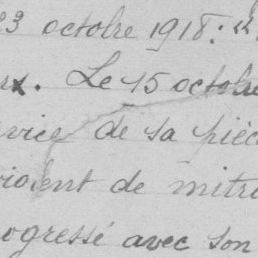 23 octobre 1918: "
x. Le 15 octobre
vice de sa pièc
violent de mitr
ogressé avec son